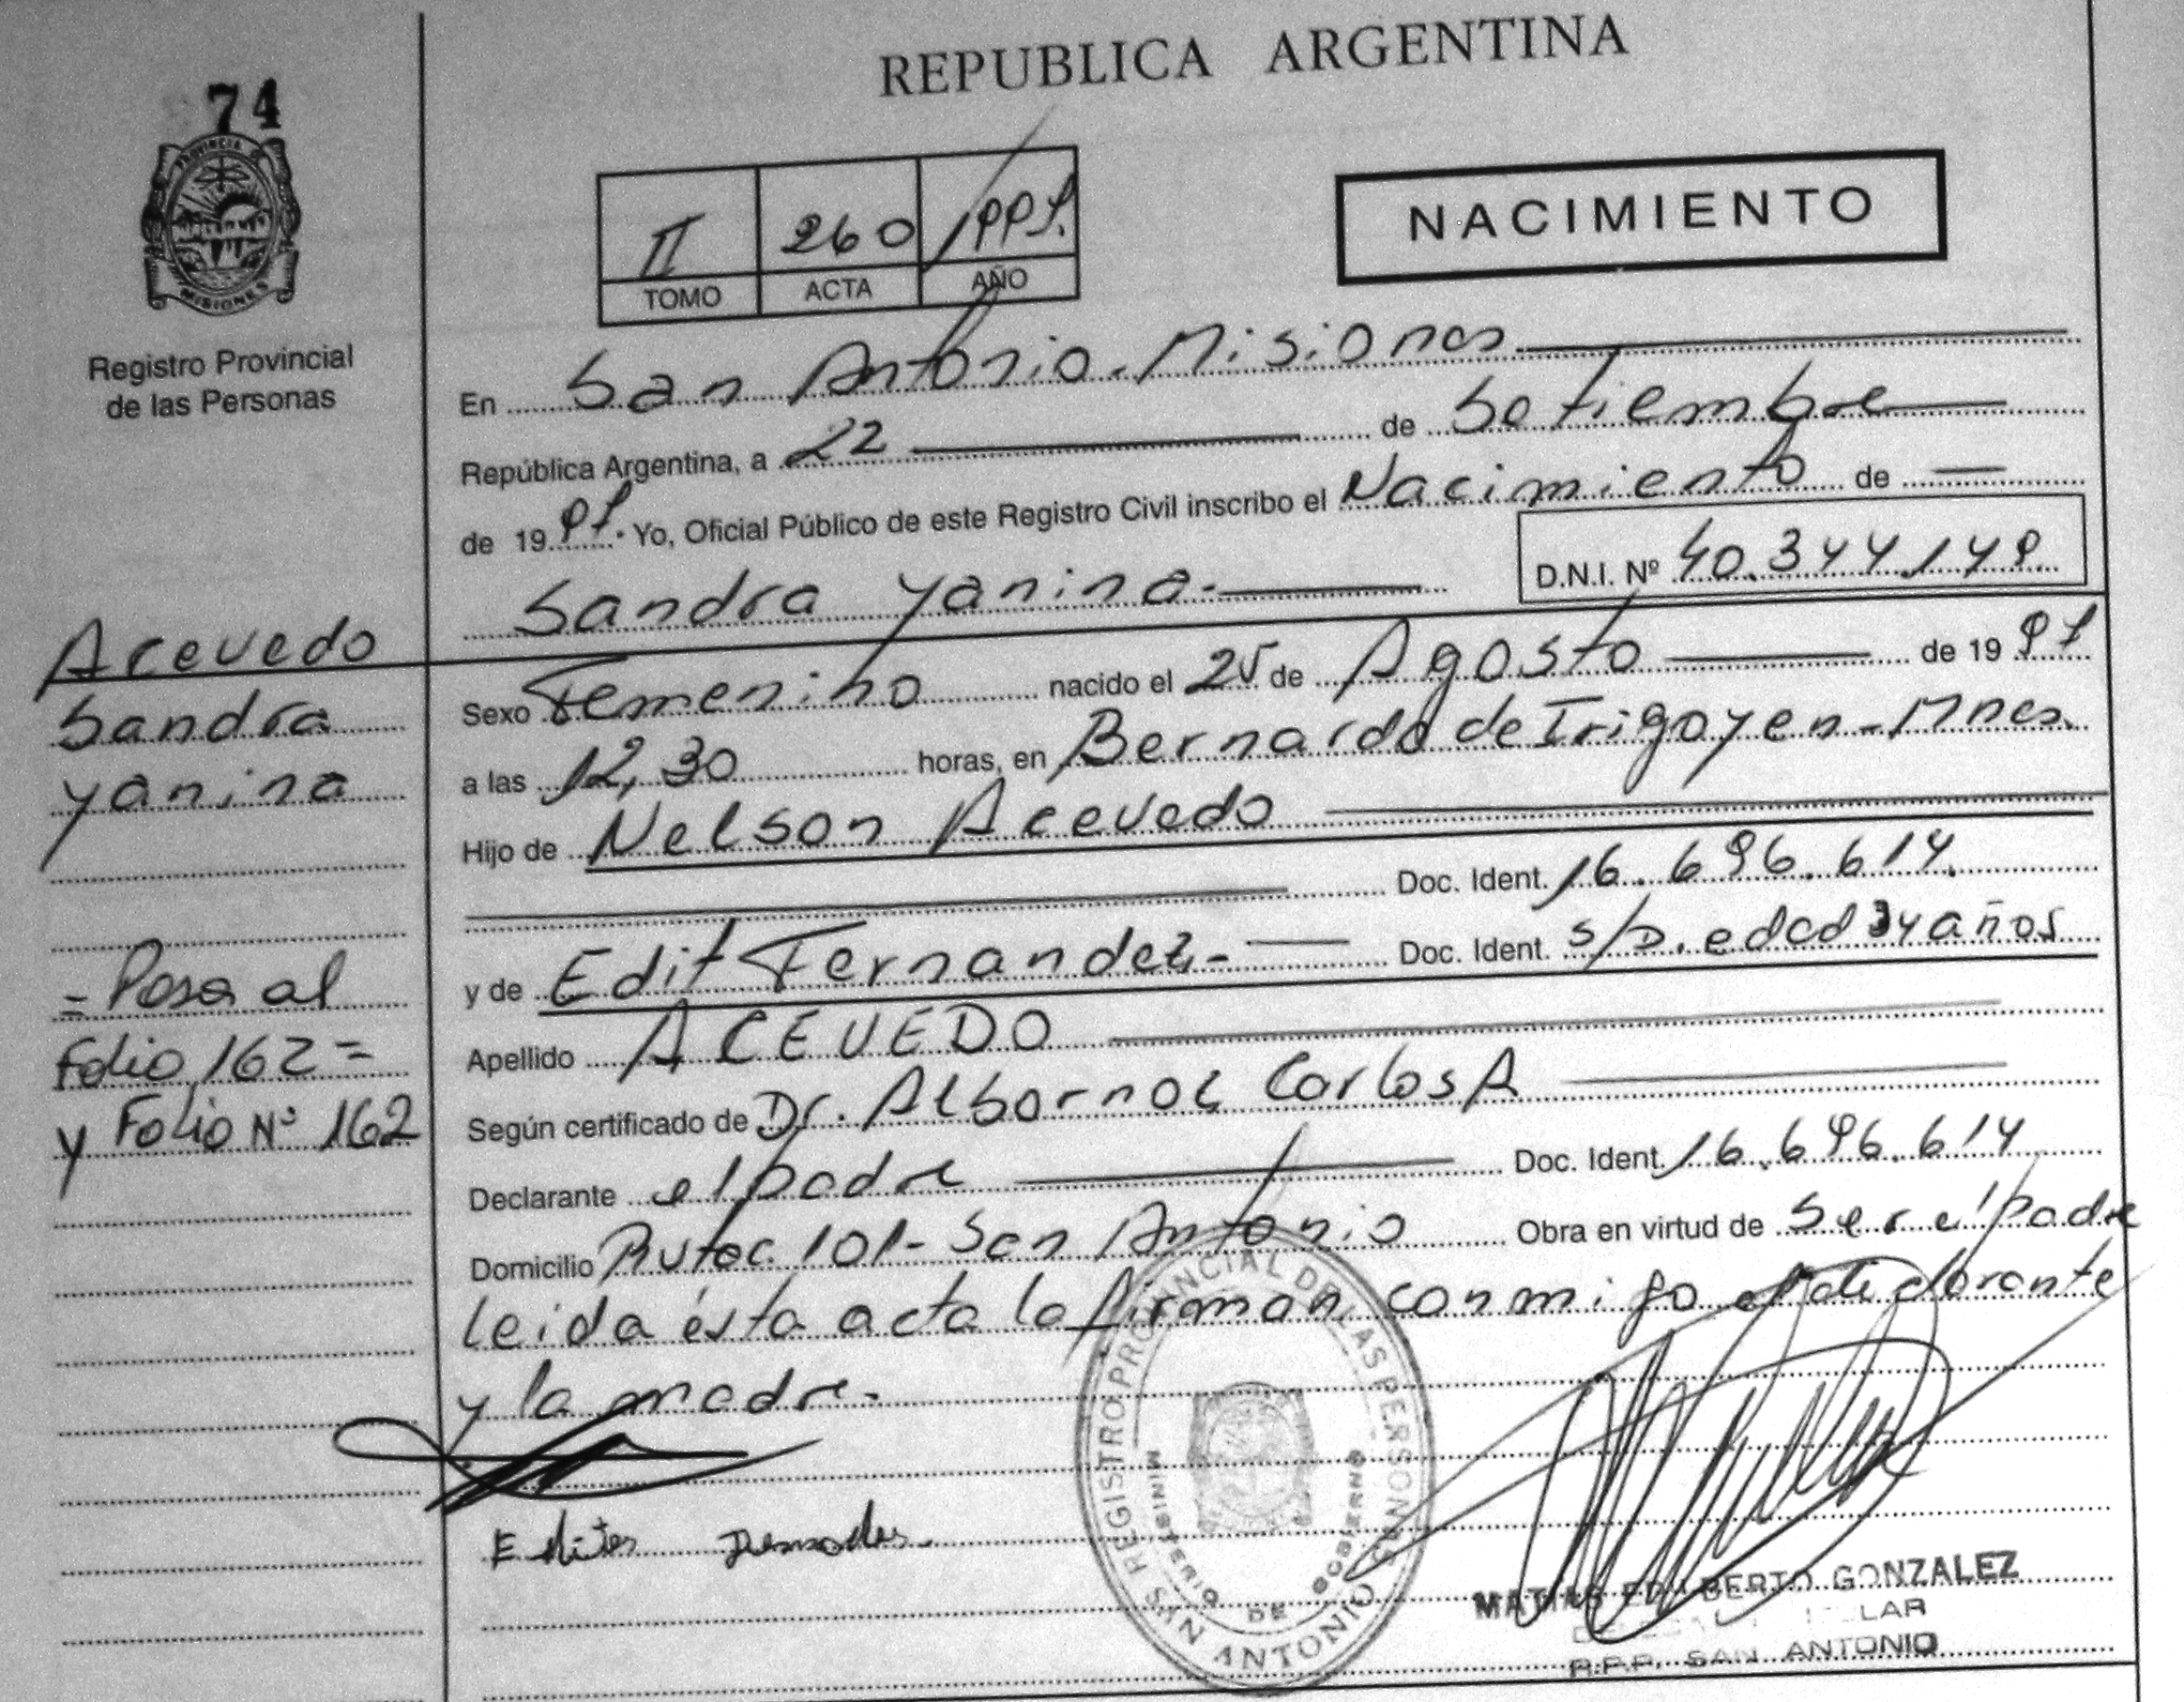 REPUBLICA ARGENTINA
74
PROVINCIA DE
MISIONES
Registro Provincial
de las Personas
II 260 1997.
TOMO ACTA AÑO
NACIMIENTO
En San Antonio. Misiones
República Argentina, a 22 de Setiembre
de 1997. Yo, Oficial Público de este Registro Civil inscribo el Nacimiento de
D.N.I. Nº 40.344.149
Sandra Yanina.
Acevedo
Sandra
Yanina
Sexo Femenino nacido el 25 de Agosto de 1997
a las 12,30 horas, en Bernardo de Irigoyen - Mnes.
Hijo de Nelson Acevedo
Doc. Ident. 16.696.614.
y de Edit Fernandez.- Doc. Ident. s/D. edad 34 años
= Pasa al
Folio 162 =
y Folio Nº 162
Apellido ACEVEDO
Según certificado de Dr. Albornoz Carlos A
Declarante el padre Doc. Ident. 16.696.614
Domicilio Ruta 101 - San Antonio Obra en virtud de ser el padre
leida ésta acta la firman conmigo el declarante
y la madre.
REGISTRO PROVINCIAL DE LAS PERSONAS
MINISTERIO DE GOBIERNO
SAN ANTONIO
MATIAS EDILBERTO GONZALEZ
R.P.P. SAN ANTONIO